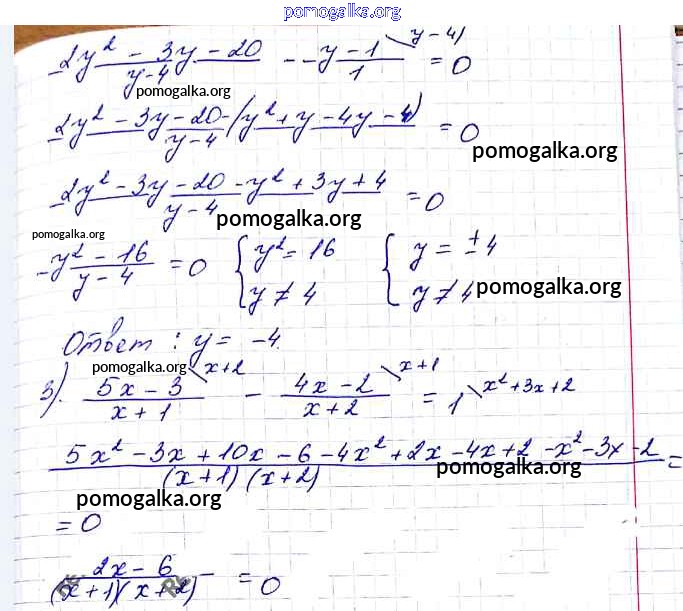 pomogalka.org
(2y² - 3y - 20)/(y - 4) - (y - 1)/1 \ y - 4) = 0
pomogalka.org
(2y² - 3y - 20 - (y² + y - 4y - 4))/(y - 4) = 0
pomogalka.org
(2y² - 3y - 20 - y² + 3y + 4)/(y - 4) = 0
pomogalka.org
pomogalka.org
(y² - 16)/(y - 4) = 0 { y² = 16 y ≠ 4 { y = ± 4 y ≠ 4
pomogalka.org
Ответ : y = -4.
pomogalka.org
3). (5x - 3)/(x + 1) \ x + 2 - (4x - 2)/(x + 2) \ x + 1 = 1 \ x² + 3x + 2
(5x² - 3x + 10x - 6 - 4x² + 2x - 4x + 2 - x² - 3x - 2)/((x + 1)(x + 2)) =
pomogalka.org
pomogalka.org
= 0
(2x - 6)/((x + 1)(x + 2)) = 0